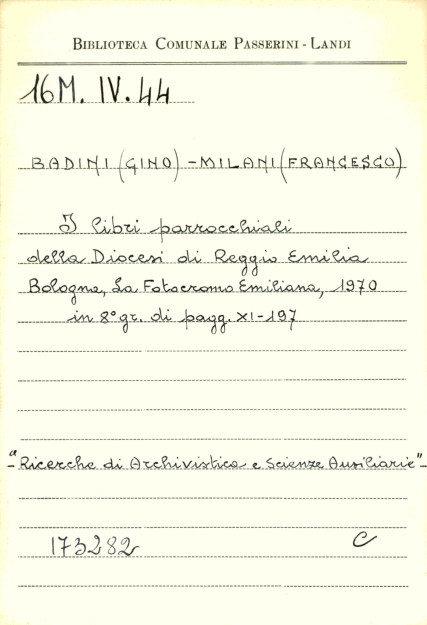 BIBLIOTECA COMUNALE PASSERINI - LANDI
16M. IV. 44
BADINI (GINO) - MILANI (FRANCESCO)
I libri parrocchiali
della Diocesi di Reggio Emilia
Bologna, La Fotocromo Emiliana, 1970
in 8° gr. di pagg. XI-197
- "Ricerche di Archivistica e Scienze Ausiliarie" -
173282 C